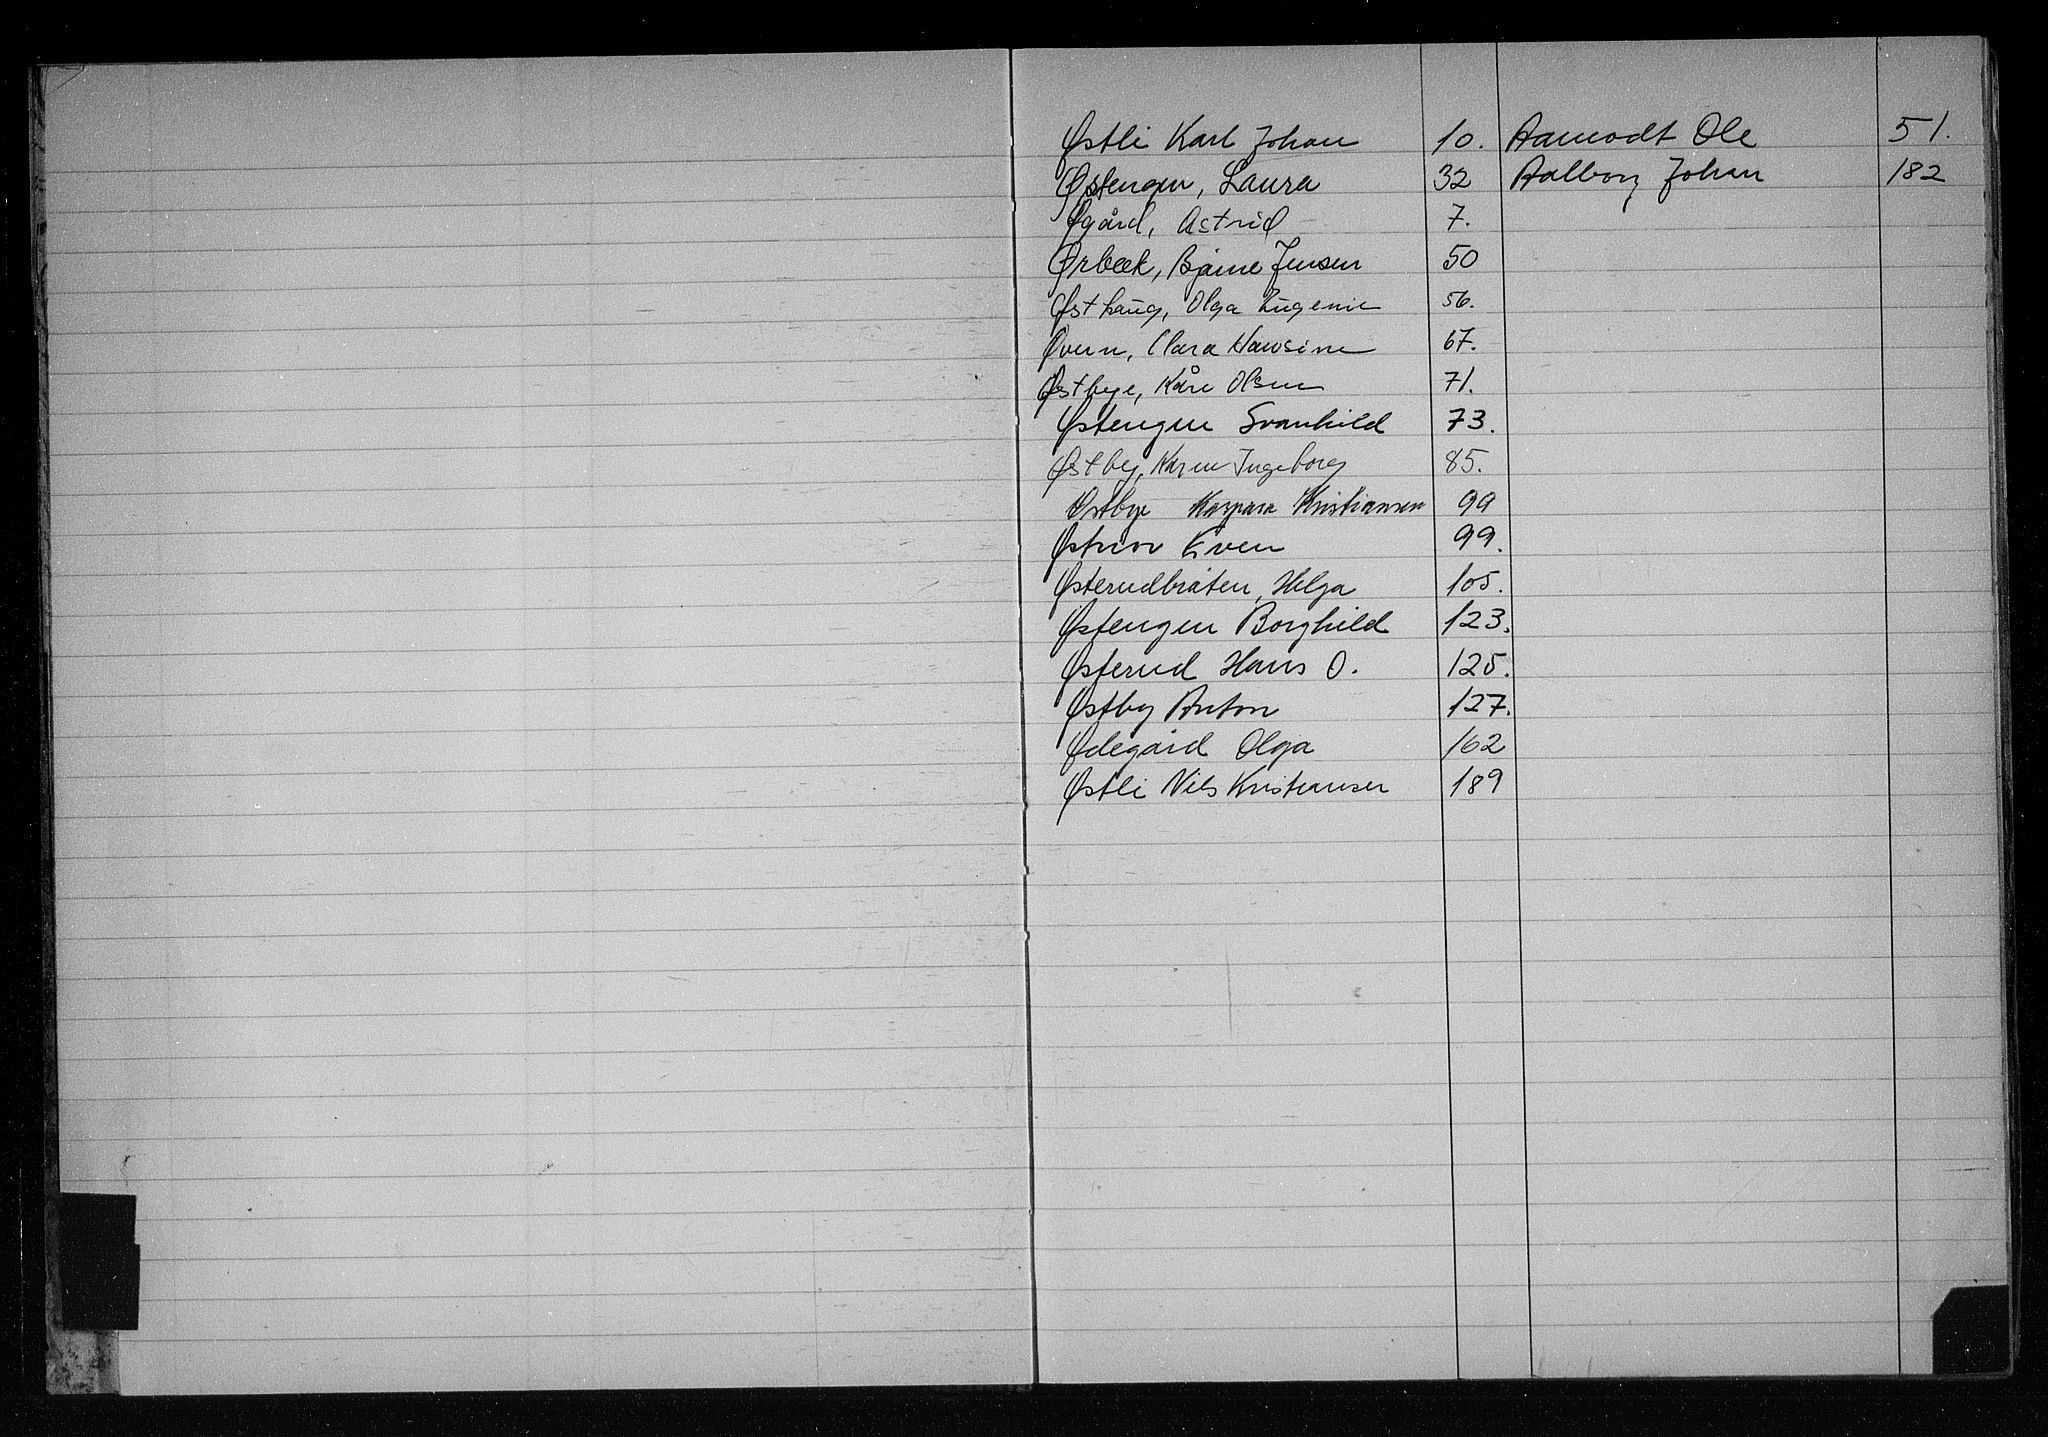 Østli Karl Johan 10. Aamodt Ole 51.
Østengen, Laura 32 Aalborg Johan 182
Øgård, Astrid 7.
Ørbæk, Bjarne Jensen 50
Østhaug, Olga Eugenie 56.
Øvern, Clara Hansine 67.
Østbye, Kåre Olsen 71.
Østengen Svanhild 73.
Østby, Karen Ingeborg 85.
Østbye Kaspara Kristiansen 99
Even 99.
Østerudbråten, Helga 105.
Østengen Borghild 123.
Østerud Hans O. 125.
Østby Anton 127.
Ødegård Olga 162
Østli Nils Kristiansen 189